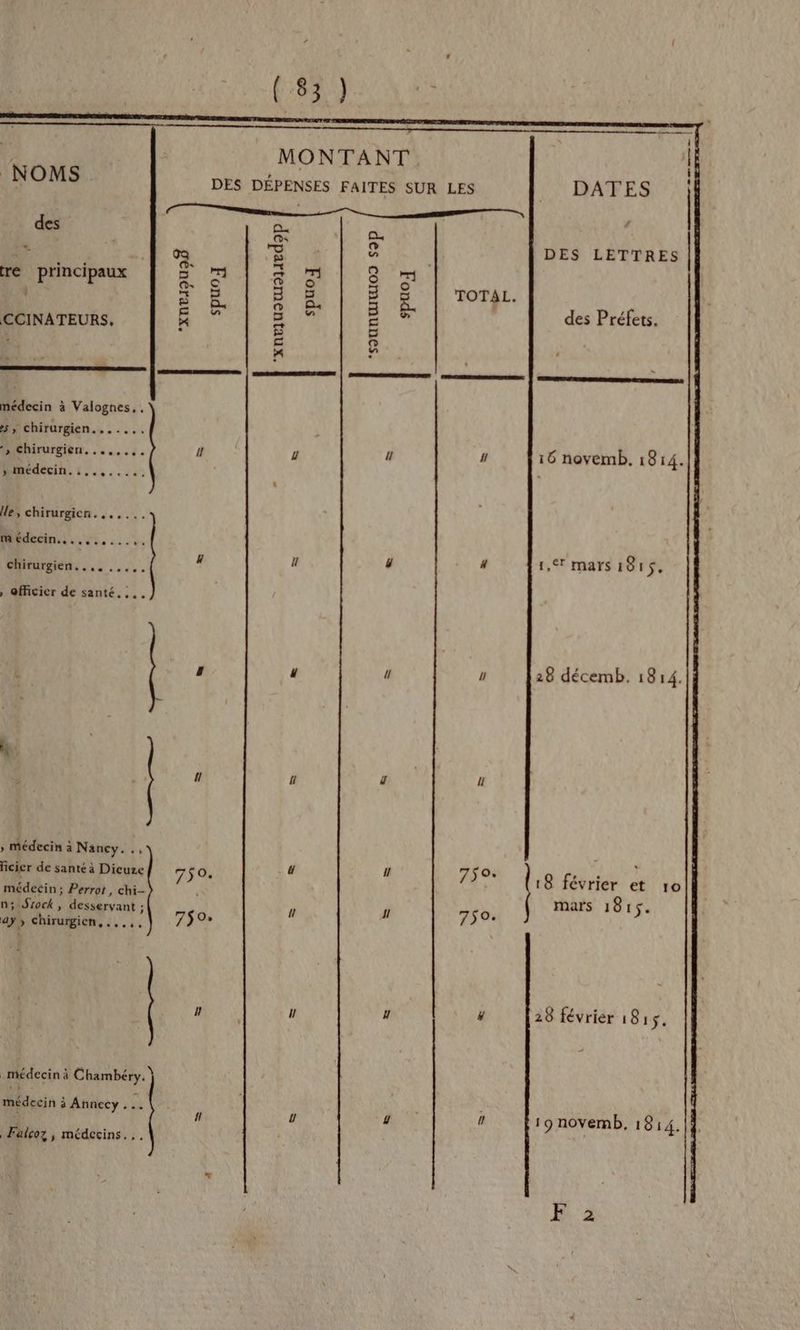 ( 83 )
NOMS
des
tre principaux
CCINATEURS.
MONTANT
DES DÉPENSES FAITES SUR LES
Fonds
généraux.
Fonds
départementaux.
Fonds
des communes.
TOTAL.
DATES
DES LETTRES
des Préfets.
médecin à Valognes..
es, chirurgien.......
, chirurgien........
, médecin..........
" " " " 16 novemb. 1814.
lle, chirurgien.......
médecin...........
chirurgien.........
, officier de santé....
" " " " 1.er mars 1815.
" " " " 28 décemb. 1814.
" " " "
, médecin à Nancy...
ficier de santé à Dieuze
médecin; Perrot, chi-
n; Stock, desservant;
ay, chirurgien,.....
750. " " 750.
750. " " 750.
18 février et 10
mars 1815.
" " " " 28 février 1815.
médecin à Chambéry.
médecin à Annecy...
Falcoz, médecins...
" " " " 19 novemb. 1814.
F 2